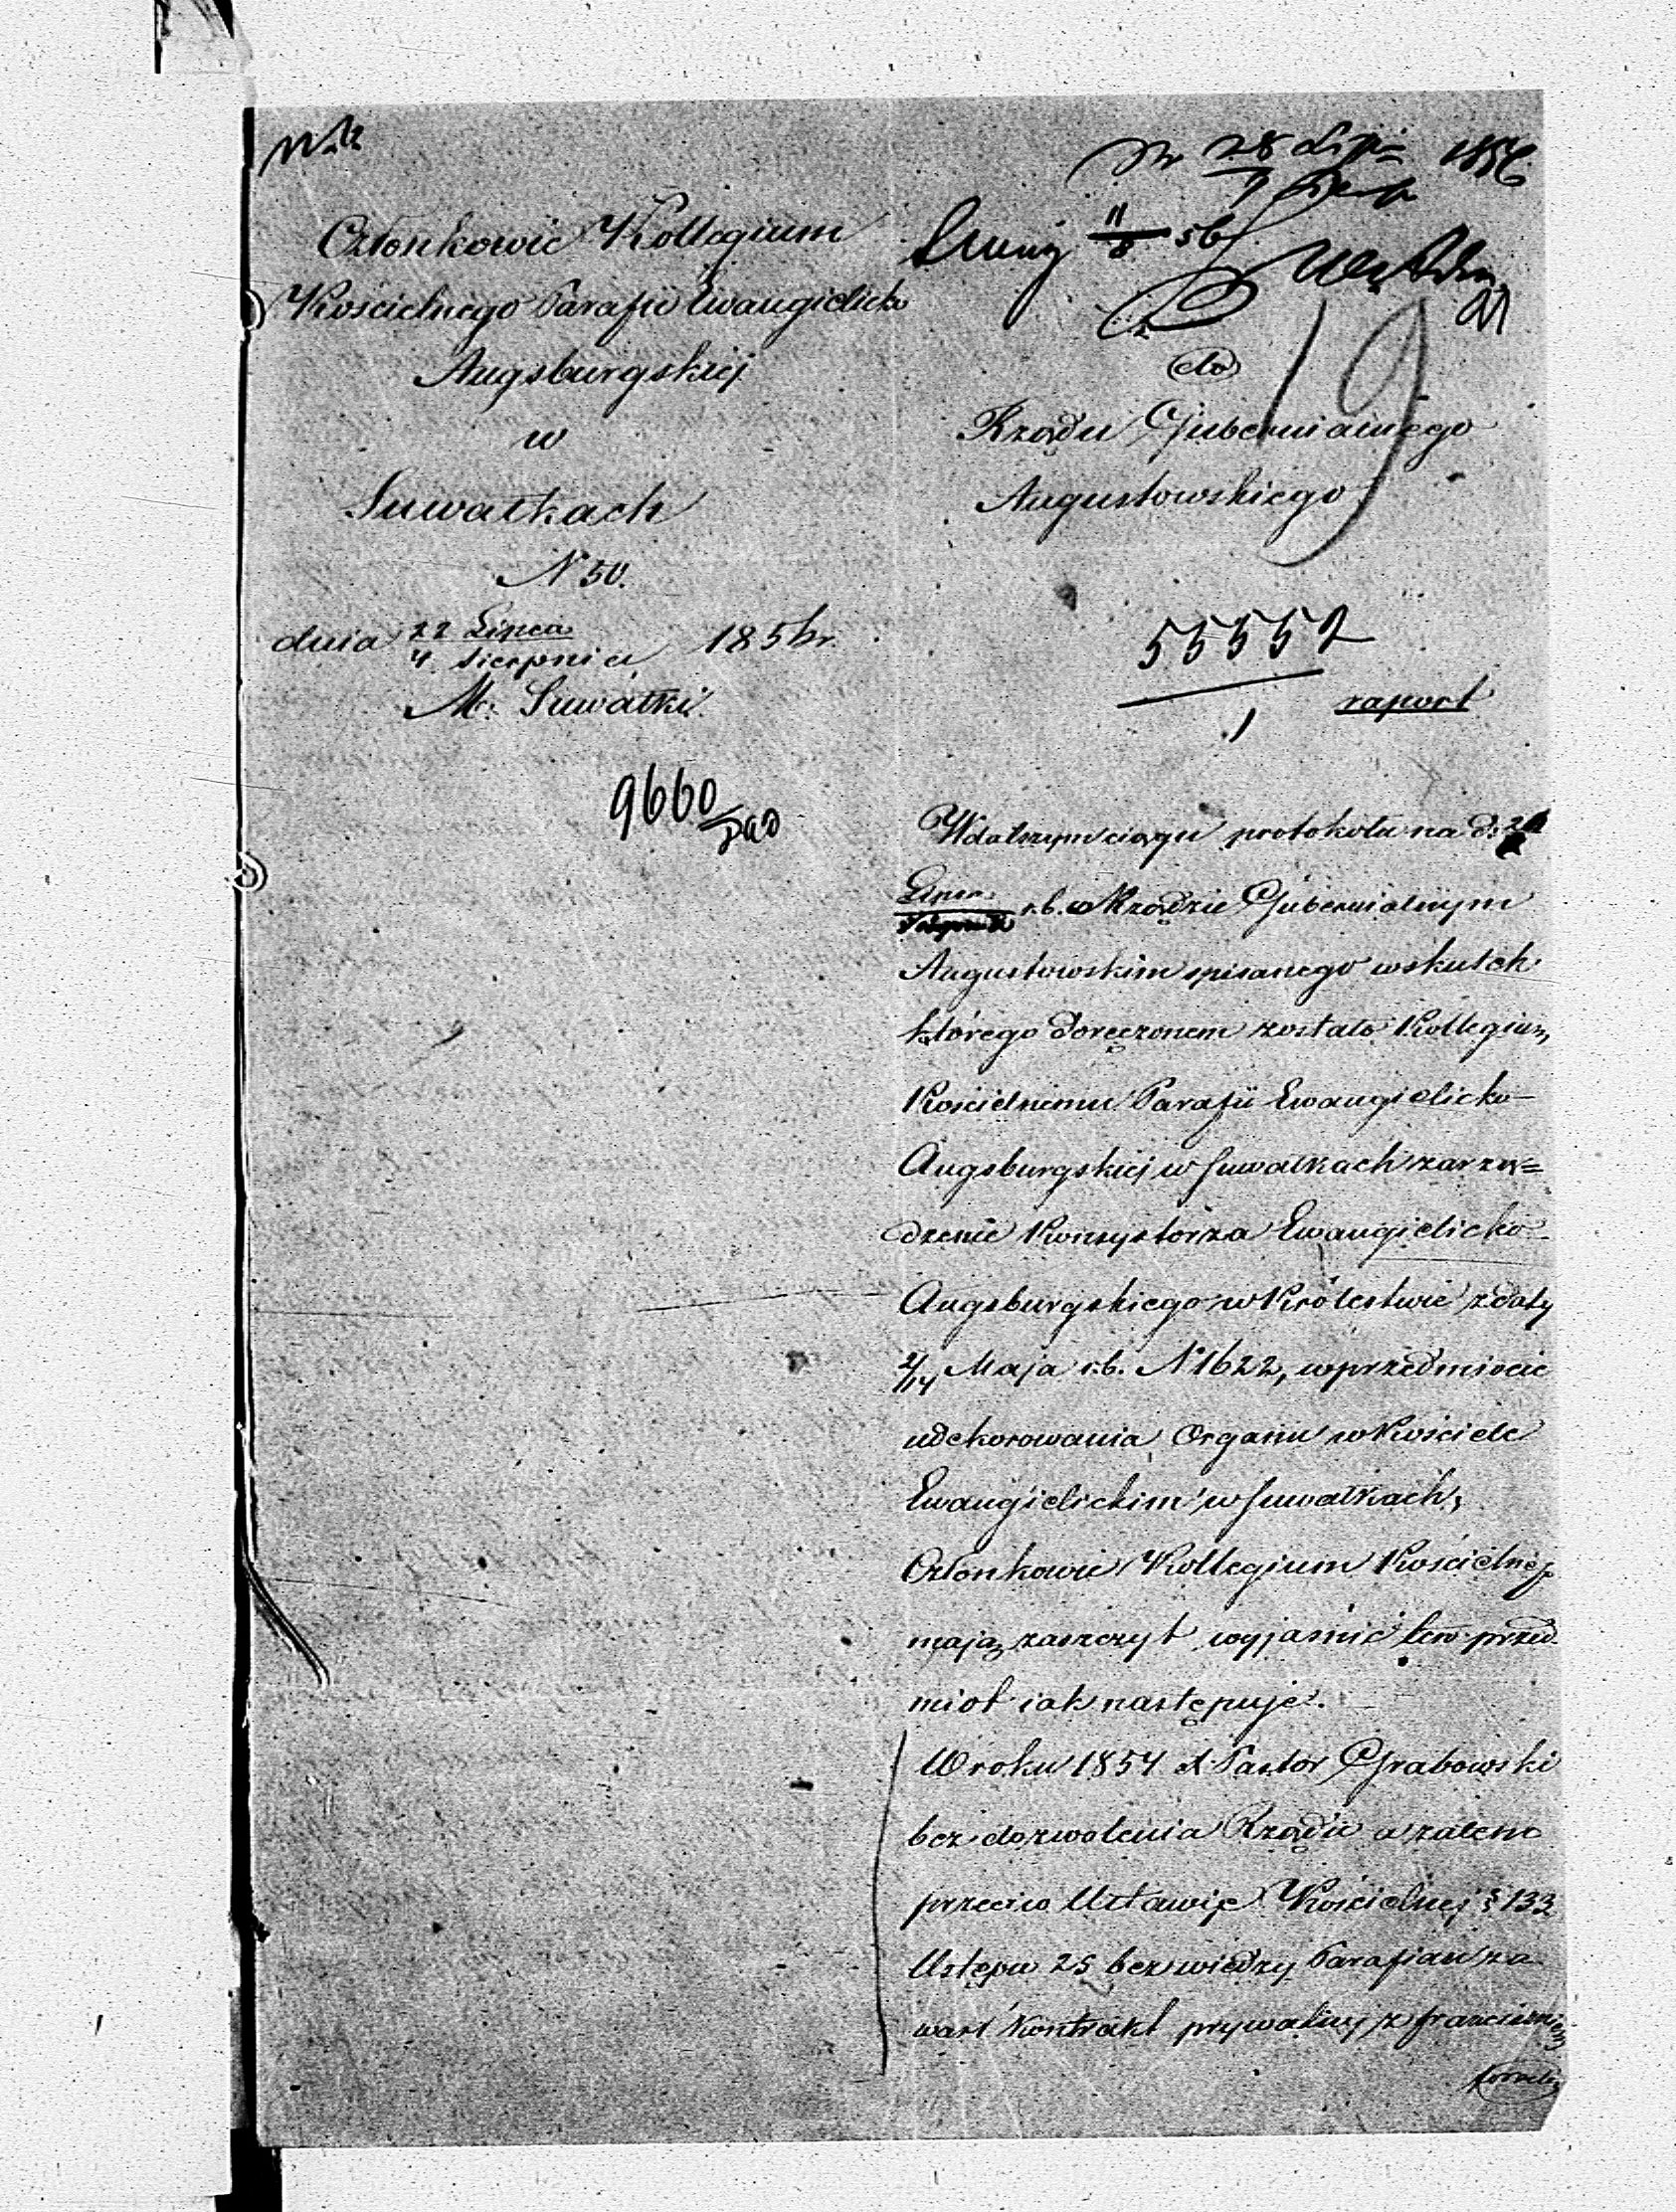 Członkowie Kollegium
Kościelnego Parafii Ewangielicko
Augsburgskiej
w
Suwałkach
N 50.
dnia 22 Lipca
4 Sierpnia 1856 r.
M. Suwałki.
9660
28 Lip 1856
11/8 56
19
do
Rządu Gubernialnego
Augustowskiego
55552
1
raport
W dalszym ciągu protokołu na d:
Lipca r.b. w Rządzie Gubernialnym
Augustowskim spisanego wskutek
którego doręczonem zostało Kollegium
Kościelnemu Parafii Ewangielicko-
Augsburgskiej w Suwałkach zarzą=
dzenie Konsystorza Ewangielicko-
Augsburgskiego w Królestwie z daty
2/14 Maja r.b. N 1622, w przedmiocie
udekorowania Organu w Kościele
Ewangielickim w Suwałkach,
Członkowie Kollegium Kościelnego
mają zaszczyt wyjaśnić ten przed
miot iak następuje.
W roku 1854 X Pastor Grabowski
bez dozwolenia Rządu a zatem
przeciw Ustawie Kościelnej § 133
Ustępu 25 bez wiedzy Parafian za
warł Kontrakt prywatny z Franciszkiem